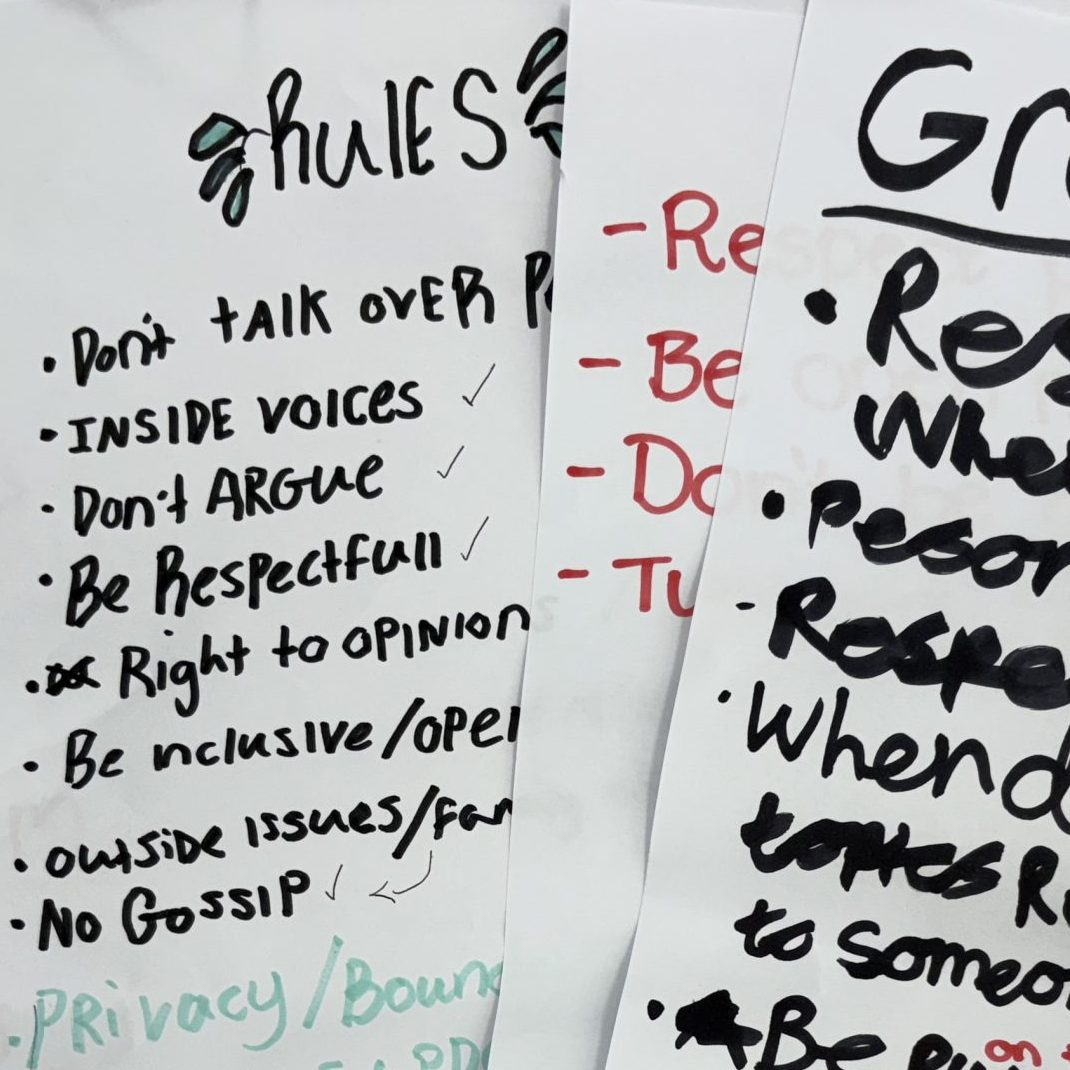 RulES
• Don't tAlK OvER
• INSIDE VOICES ✓
• Don't ARGue ✓
• Be RespectFull ✓
• Right to OPINIOn
• Be nclusIve/OPe
• outside Issues/Fam
• No GossIP ✓
• PRivacy/Boun
- Re
- Be
- Do
- Tu
Gr
• Res
Whe
• Peson
- Respe
• When d
topics R
to Someo
• Be
on